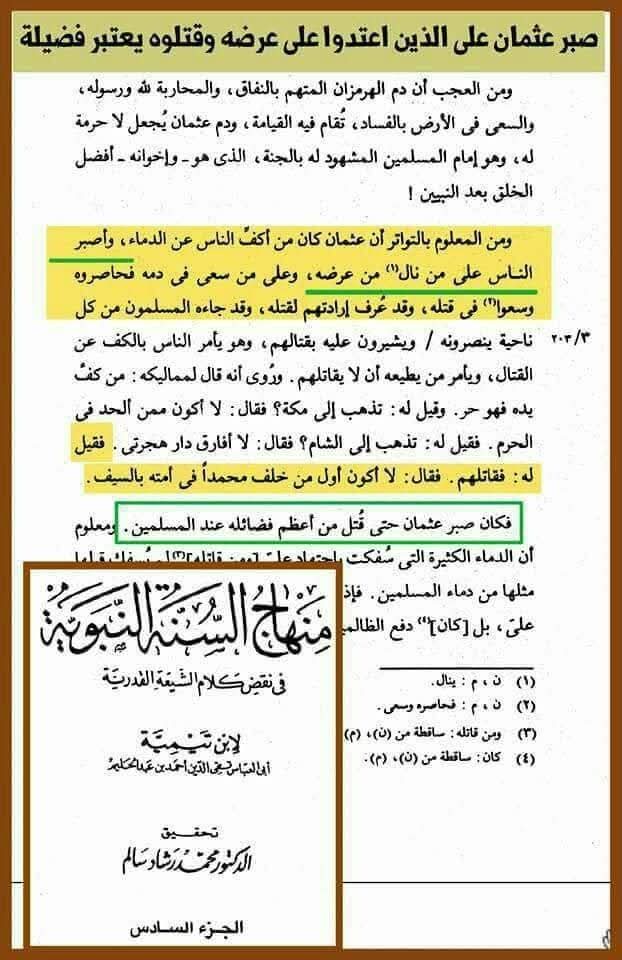 صبر عثمان على الذين اعتدوا على عرضه وقتلوه يعتبر فضيلة
ومن العجب أن دم الهرمزان المتهم بالنفاق، والمحاربة لله ورسوله،
والسعى فى الأرض بالفساد، تُقام فيه القيامة، ودم عثمان يُجعل لا حرمة
له، وهو إمام المسلمين المشهود له بالجنة، الذى هو ـ وإخوانه ـ أفضل
الخلق بعد النبيين !
ومن المعلوم بالتواتر أن عثمان كان من أكفِّ الناس عن الدماء، وأصبر
الناس على من نال(١) من عرضه، وعلى من سعى فى دمه فحاصروه
وسعوا(٢) فى قتله، وقد عُرف إرادتهم لقتله، وقد جاءه المسلمون من كل
ناحية ينصرونه / ويشيرون عليه بقتالهم، وهو يأمر الناس بالكف عن ٢٠٣/٣
القتال، ويأمر من يطيعه أن لا يقاتلهم. ورُوى أنه قال لمماليكه: من كفَّ
يده فهو حر. وقيل له: تذهب إلى مكة؟ فقال: لا أكون ممن ألحد فى
الحرم. فقيل له: تذهب إلى الشام؟ فقال: لا أفارق دار هجرتى. فقيل
له: فقاتلهم. فقال: لا أكون أول من خلف محمداً فى أمته بالسيف.
فكان صبر عثمان حتى قُتل من أعظم فضائله عند المسلمين. ومعلوم
أن الدماء الكثيرة التى سُفكت باجتهاد علىّ [ومن قاتله](٣) لم يُسفك قبلها
مثلها من دماء المسلمين. فإذ
علىّ، بل [كان](٤) دفع الظالمي
(١) ن ، م : ينال.
(٢) ن ، م : فحاصره وسعى.
(٣) ومن قاتله: ساقطة من (ن)، (م)
(٤) كان: ساقطة من (ن)، (م).
منهاج السنة النبوية
فى نقض كلام الشيعة القدرية
لابن تيمية
أبى العباس تقى الدين أحمد بن عبد الحليم
تحقيق
الدكتور محمد رشاد سالم
الجزء السادس